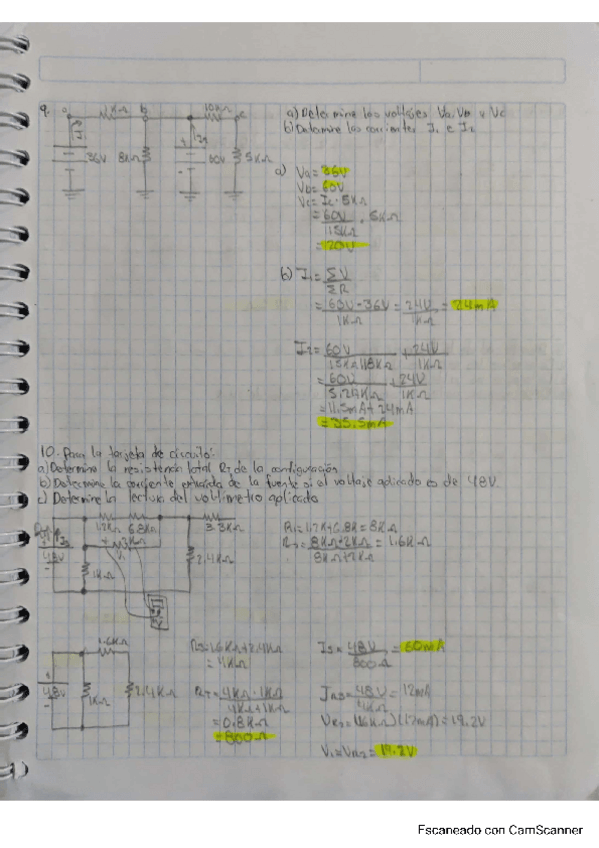 9.
a
1KΩ
b
10KΩ
c
I1
I2
36V
8KΩ
60V
5KΩ
a) Determine los voltajes Va, Vb y Vc
b) Determine las corrientes I1 e I2
a) Va = 36V
Vb = 60V
Vc = I2 · 5KΩ
= 60V · 5KΩ
15KΩ
= 20V
b) I1 = ΣV
ΣR
= 60V - 36V = 24V = 24mA
1KΩ 1KΩ
I2 = 60V + 24V
15KΩ||8KΩ 1KΩ
= 60V + 24V
5.21KΩ 1KΩ
= 11.5mA + 24mA
= 35.5mA
10. Para la tarjeta de circuito:
a) Determine la resistencia total RT de la configuración
b) Determine la corriente extraída de la fuente si el voltaje aplicado es de 48V.
c) Determine la lectura del voltímetro aplicado
1.2KΩ 6.8KΩ 3.3KΩ
Is
48V
2KΩ
V1
1KΩ
2.4KΩ
R1 = 1.2K + 6.8K = 8KΩ
R2 = 8KΩ · 2KΩ = 1.6KΩ
8KΩ + 2KΩ
1.6KΩ
48V
1KΩ
2.4KΩ
R3 = 1.6KΩ + 2.4KΩ
= 4KΩ
RT = 4KΩ · 1KΩ
4KΩ + 1KΩ
= 0.8KΩ
= 800Ω
Is = 48V = 60mA
800Ω
IR3 = 48V = 12mA
4KΩ
VR2 = (1.6KΩ)(12mA) = 19.2V
V1 = VR2 = 19.2V
Escaneado con CamScanner